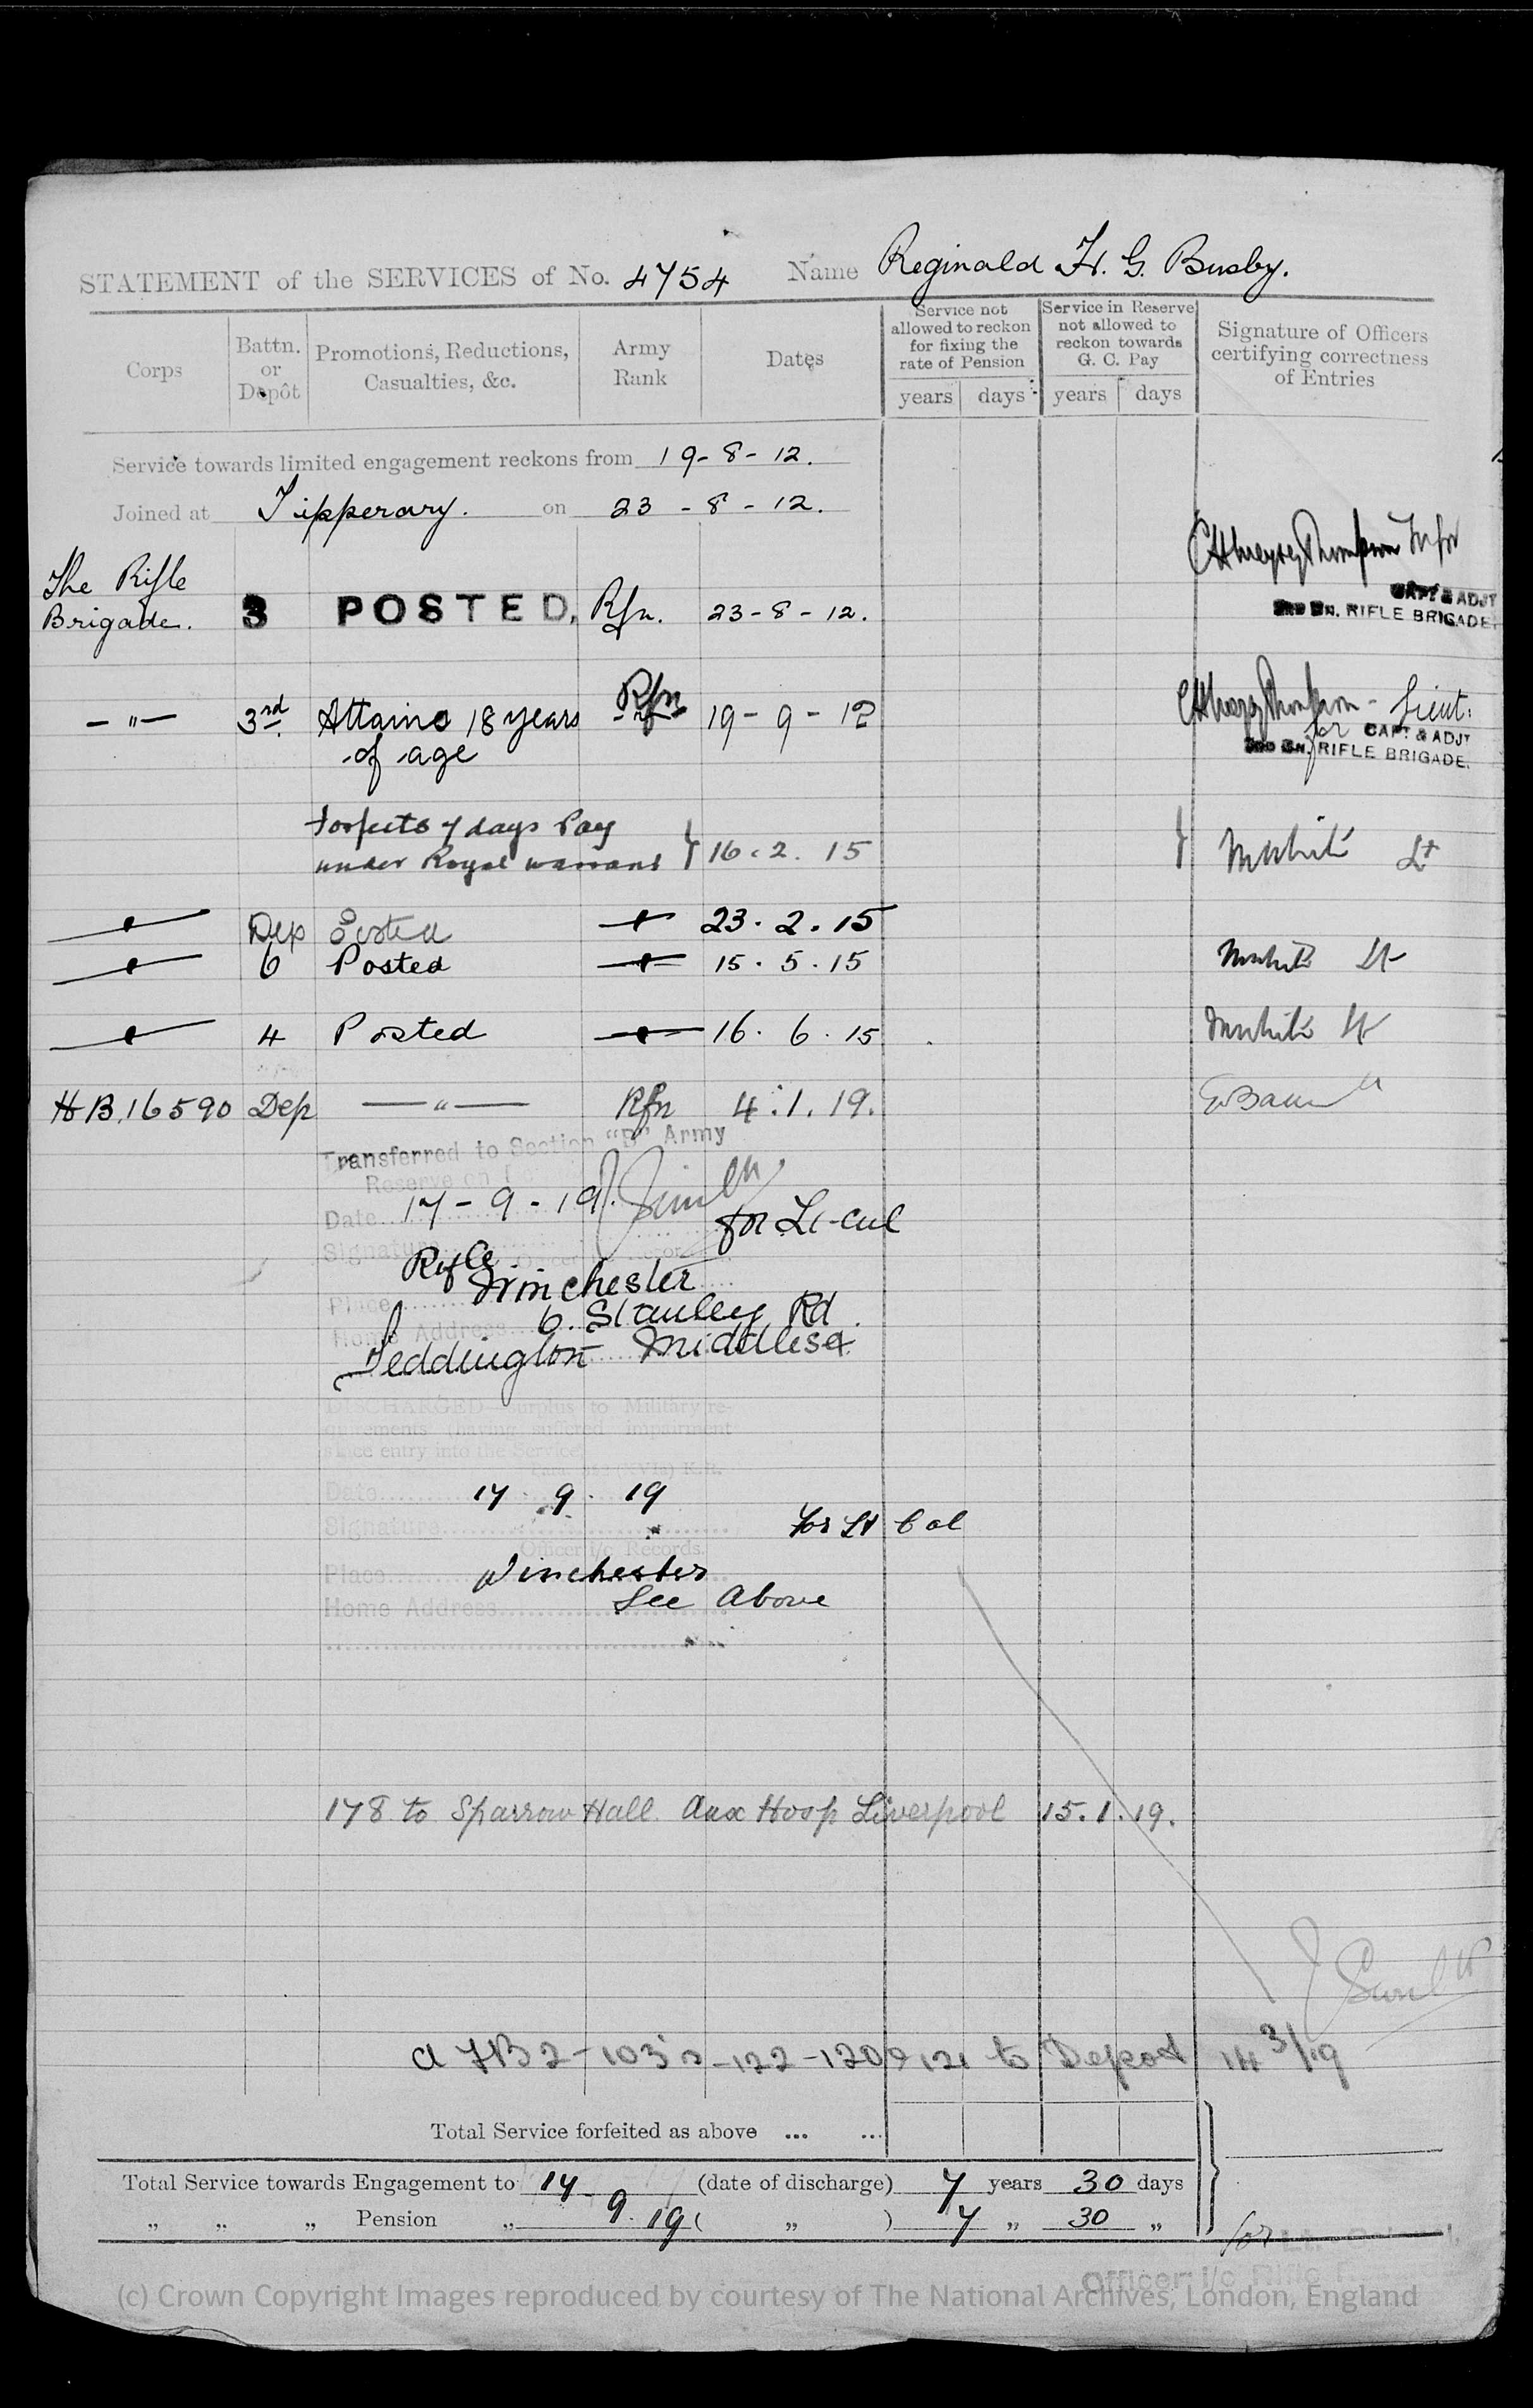 STATEMENT of the SERVICES of No. 4754 Name Reginald H. G. Busby.
Corps
Battn. or Depôt
Promotions, Reductions, Casualties, &c.
Army Rank
Dates
Service not allowed to reckon for fixing the rate of Pension
years days
Service in Reserve not allowed to reckon towards G. C. Pay
years days
Signature of Officers certifying correctness of Entries
Service towards limited engagement reckons from 19-8-12.
Joined at Tipperary. on 23-8-12.
The Rifle
Brigade. 3 POSTED, Rfn. 23-8-12.
CAPT & ADJT
3RD BN. RIFLE BRIGADE.
— " — 3rd Attains 18 years Rfn 19-9-12 Lieut:
of age for CAPT & ADJT
3RD BN. RIFLE BRIGADE.
Forfeits 7 days Pay
under Royal warrant } 16.2.15 } Lt
Dep Posted 23.2.15
6 Posted 15.5.15 Lt
4 Posted 16.6.15 Lt
HB.16590 Dep — " — Rfn 4.1.19.
Transferred to Section "B" Army
Reserve on
Date 17-9-19
Signature for Lt-Col
Rifle
Place Winchester
Home Address 6. Stanley Rd.
Teddington Middlesex
DISCHARGED Surplus to Military re-
quirements (having suffered impairment
since entry into the Service)
Para. 392 (XVIa) K.R.
Date 17.9.19
Signature For Lt Col
Officer i/c Records.
Place Winchester
Home Address See Above
178 to Sparrow Hall. Aux Hosp Liverpool 15.1.19.
to Depot 14 3/19
Total Service forfeited as above ... ...
Total Service towards Engagement to 17-9.19 (date of discharge) 7 years 30 days
„ „ „ Pension „ ( „ ) 7 „ 30 „
for
Officer i/c
(c) Crown Copyright Images reproduced by courtesy of The National Archives, London, England